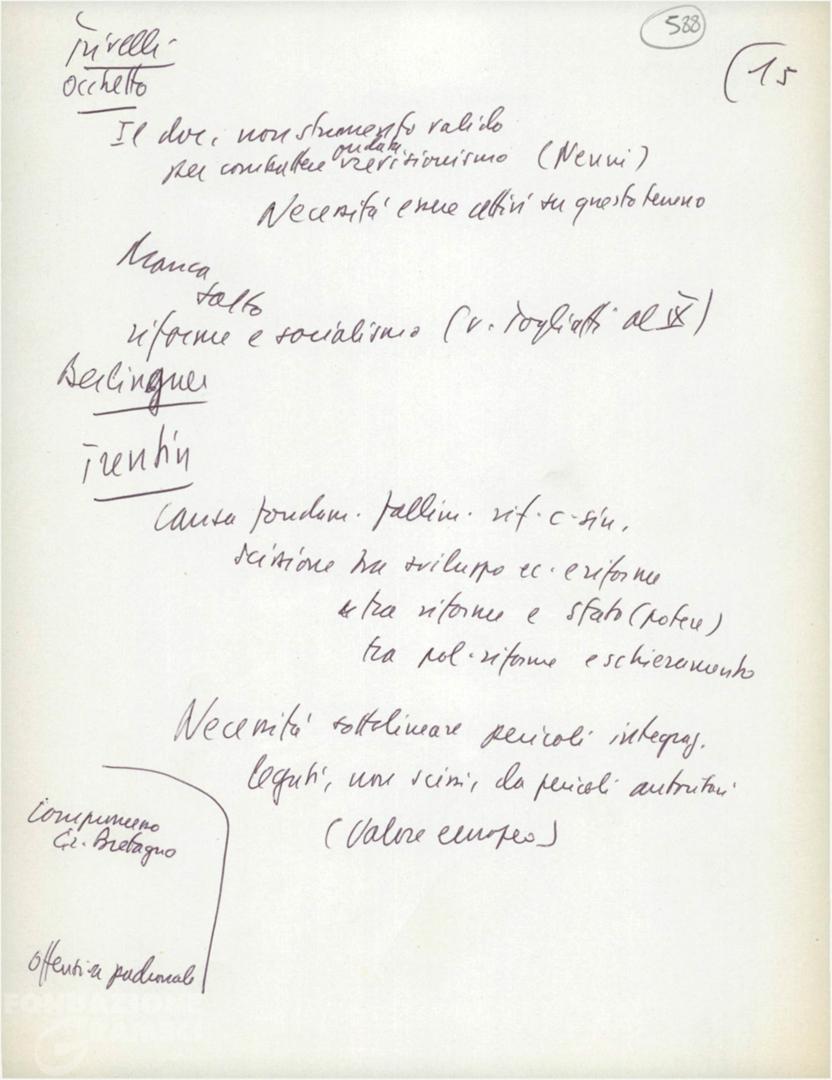 588
(15
Trivelli
Occhetto
Il doc. non strumento valido
ondata
per combattere revisionismo (Nenni)
Necessità essere attivi su questo terreno
Manca
salto
riforme e socialismo (v. Togliatti al IX)
Berlinguer
Trentin
Causa fondam. fallim. rif. c-sin.
scissione tra sviluppo ec. e riforme
tra riforme e stato (potere)
tra pol. riforme e schieramento
Necessità sottolineare pericoli integraz.
legati, non scissi, da pericoli autoritari
(Valore europeo)
Gr. Bretagna
offensiva padronale
FONDAZIONE
GRAMSCI